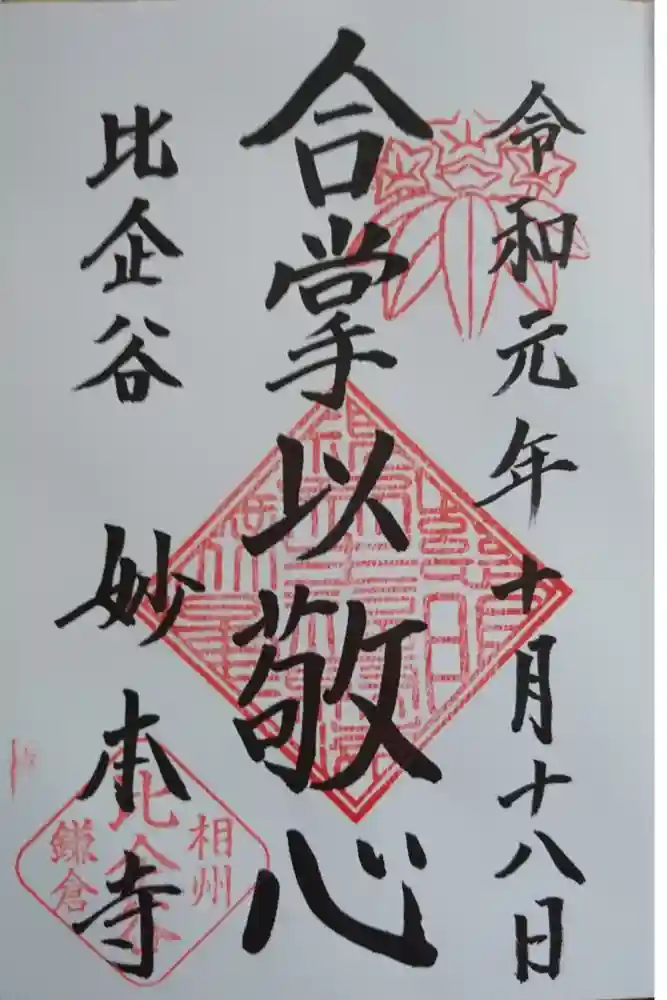 令和元年十月十八日
合掌以敬心
比企谷
妙本寺
相州
比企谷
鎌倉